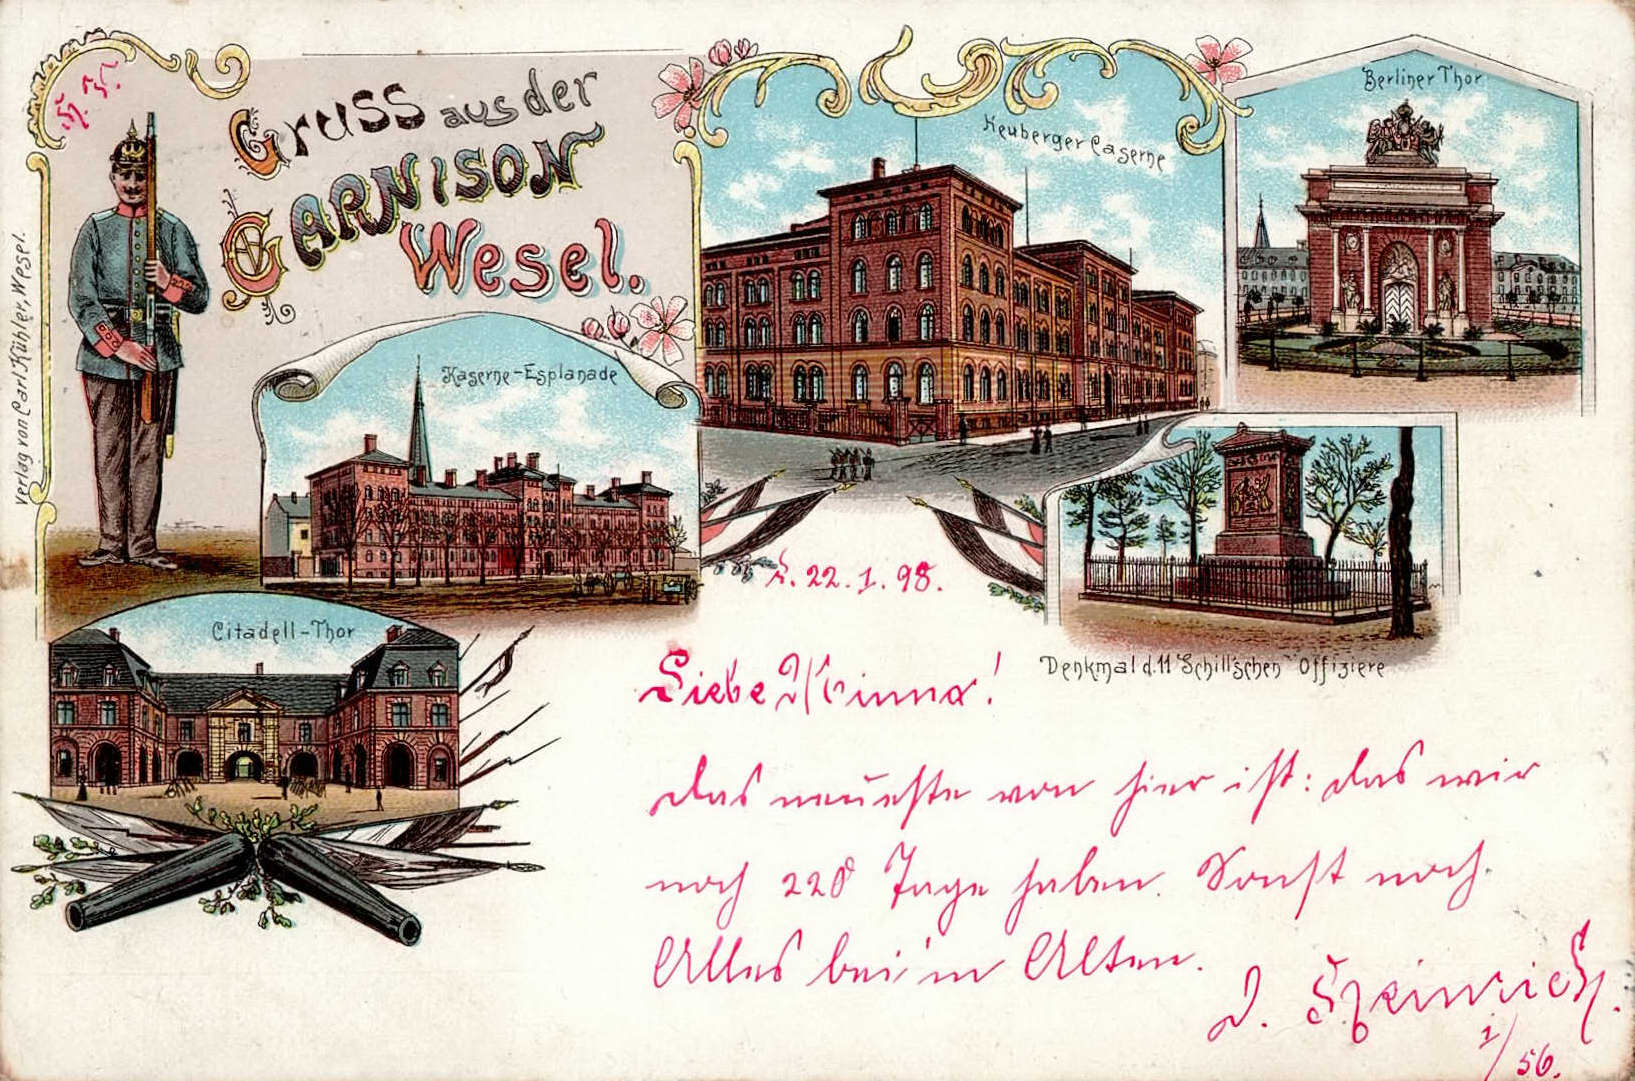 Gruss aus der
GARNISON
Wesel.
Verlag von Carl Kühler, Wesel.
Kaserne-Esplanade
Heuberger Caserne
Berliner Thor
Citadell-Thor
Denkmal d. 11 Schill'schen Offiziere
22.1.98.
Liebe Minna!
Das neueste von hier ist: das wir
noch 220 Tage haben. Sonst noch
Alles bei'm Alten.
D. Heinrich.
1/56.